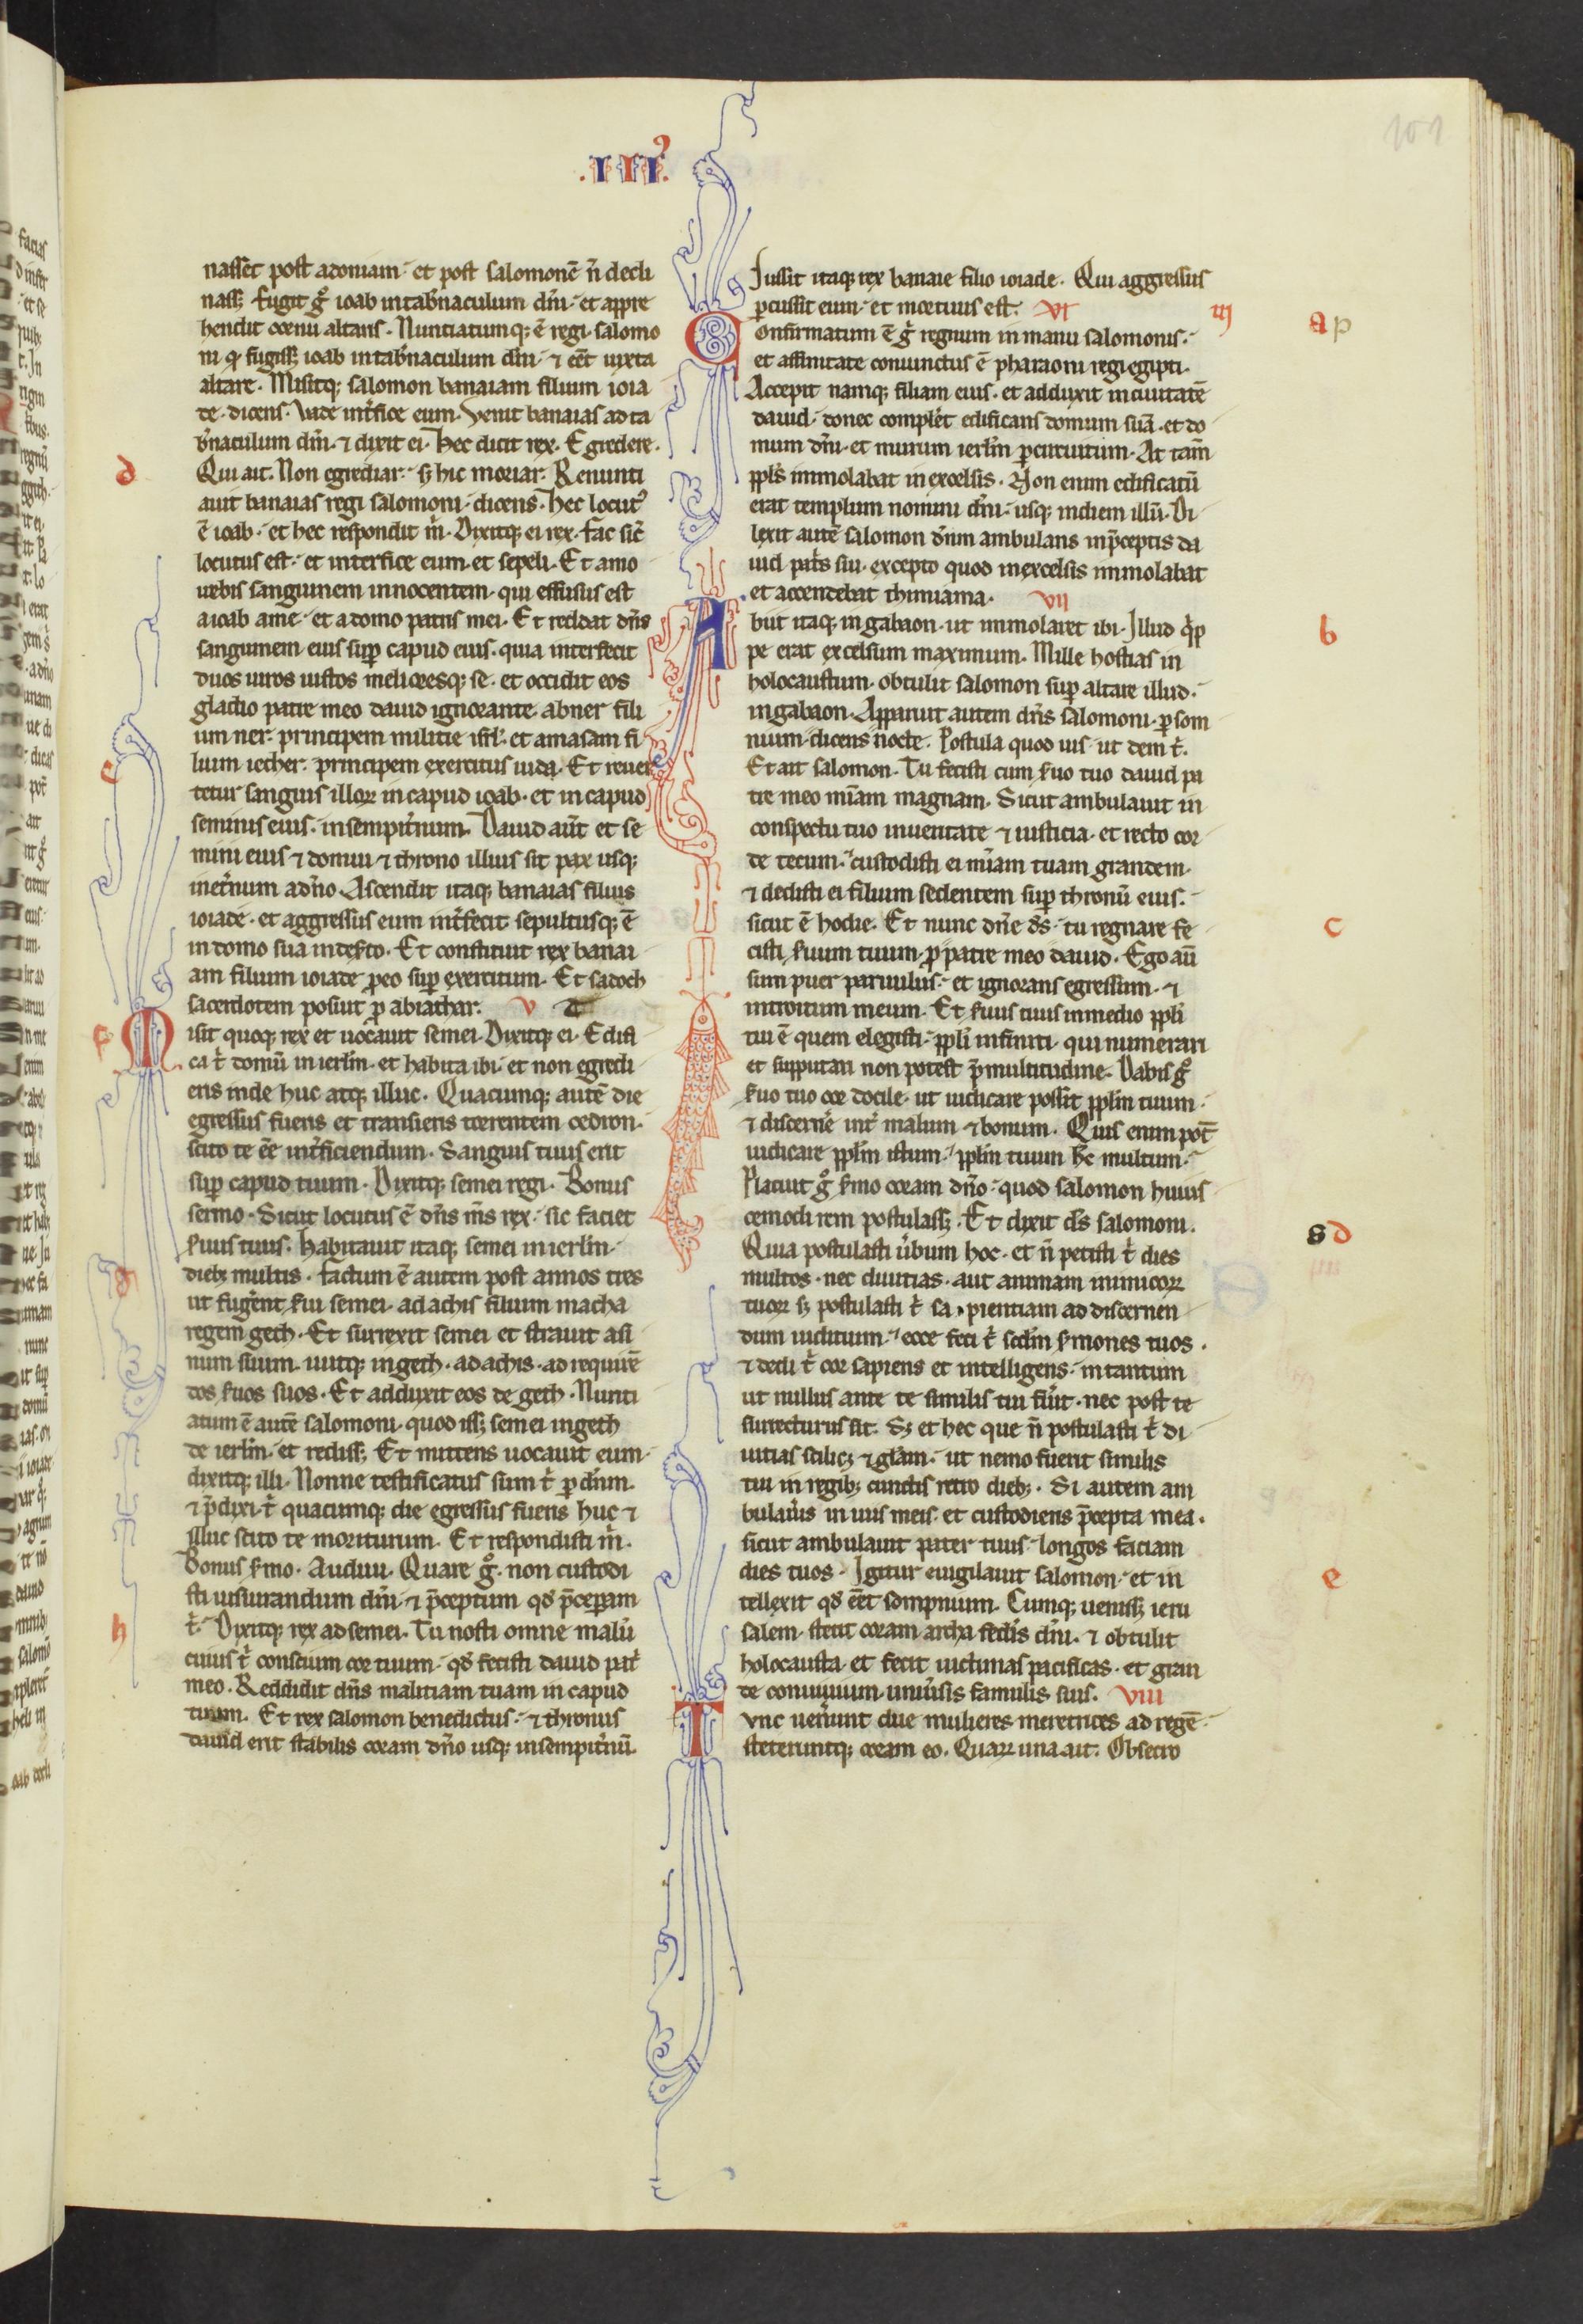 .III⁹.
101
nasset post adoniam· et post salomonē n̄ decli
nass; fugit gͦ ioab in tab̄naculum dn̄i· et appre
hendit cornu altaris. Nuntiatumq; ē regi salomo
ni qͥ fugiss; ioab in tab̄naculum dn̄i· ⁊ eēt iuxta
altare. Misitq; salomon banaiam filium ioia
de· dicens. Vade int̄fice eum. Venit banaias ad ta
b̄naculum dn̄i· ⁊ dixit ei. Hec dicit rex. Egredere.
d
Qui ait. Non egrediar· s; hic moriar. Renunti
auit banaias regi salomoni· dicens. Hec locut⁹
ē ioab· et hec respondit m̄. Dixitq; ei rex. Fac sic̄
locutus est· et interfice eum· et sepeli. Et amo
uebis sanguinem innocentem· qui effusus est
a ioab a me· et a domo patris mei. Et reddat dn̄s
sanguinem eius sup capud eius. quia interfecit
duos uiros iustos melioresq; se· et occidit eos
gladio patre meo dauid ignorante· abner fili
um ner· principem militie isrl̄· et amasam fi
e
lium iether· principem exercitus iuda. Et reuer
tetur sanguis illoꝝ in capud ioab· et in capud
seminis eius· in sempit̄num. Dauid aūt et se
mini eius ⁊ domui ⁊ throno illius sit pax usq;
in et̄num a dn̄o. Ascendit itaq; banaias filius
ioiade· et aggressus eum int̄fecit sepultusq; ē
in domo sua in deserto. Et constituit rex banai
am filium ioiade p eo sup exercitum. Et sadoch
sacerdotem posuit p abiathar. V
f
Misit quoq; rex et uocauit semei. Dixitq; ei. Edifi
ca t̄ domū in ierlm̄· et habita ibi· et non egredi
eris inde huc atq; illuc. Quacumq; autē die
egressus fueris et transieris torrentem cedron·
scito te eē int̄ficiendum. Sanguis tuus erit
sup capud tuum. Dixitq; semei regi. Bonus
sermo. Sicut locutus ē dn̄s m̄s rex· sic faciet
s̄uus tuus. Habitauit itaq; semei in ierlm̄·
g
dieb; multis. Factum ē autem post annos tres
ut fuger̄nt s̄ui semei· ad achis filium macha
regem geth. Et surrexit semei et strauit asi
num suum· iuitq; in geth· ad achis· ad requirē
dos s̄uos suos. Et adduxit eos de geth. Nunti
atum ē autē salomoni· quod iss; semei in geth
de ierlm̄· et rediss;. Et mittens uocauit eum·
dixitq; illi. Nonne testificatus sum t̄ p dn̄m·
⁊ p̄dixi t̄ quacumq; die egressus fueris huc ⁊
illuc scito te moriturum. Et respondisti m̄.
Bonus s̄mo. Audiui. Quare gͦ non custodi
sti iusiurandum dn̄i· ⁊ p̄ceptum qd̄ p̄cepam
h
t̄. Dixitq; rex ad semei. Tu nosti omne malū
cuius t̄ conscium cor tuum· qd̄ fecisti dauid pat̄
meo. Reddidit dn̄s malitiam tuam in capud
tuum. Et rex salomon benedictus· ⁊ thronus
dauid erit stabilis coram dn̄o usq; in sempit̄nū.
Iussit itaq; rex banaie filio ioiade. Qui aggressus
pcussit eum· et mortuus est. VI
III
a p
Confirmatum ē gͥ regnum in manu salomonis·
et affinitate coniunctus ē pharaoni regi egipti.
Accepit namq; filiam eius· et adduxit in ciuitatē
dauid· donec complēt edificans domum suā· et do
mum dn̄i· et murum ierlm̄ p circuitum. At tam̄
ppl̄s immolabat in excelsis. Non enim edificatū
erat templum nomini dn̄i· usq; in diem illū. Di
lexit autē salomon dn̄m ambulans in p̄ceptis da
uid pat̄s sui· excepto quod in excelsis immolabat
et accendebat thimiama. VII
b
Abiit itaq; in gabaon· ut immolaret ibi. Illud qͥp
pe erat excelsum maximum. Mille hostias in
holocaustum· obtulit salomon sup altare illud·
in gabaon. Apparuit autem dn̄s salomoni· p som
nium· dicens nocte. Postula quod uis· ut dem t̄.
Et ait salomon. Tu fecisti cum s̄uo tuo dauid pa
tre meo mīam magnam. Sicut ambulauit in
conspectu tuo in ueritate ⁊ iusticia· et recto cor
de tecum· custodisti ei mīam tuam grandem·
⁊ dedisti ei filium sedentem sup thronū eius·
c
sicut ē hodie. Et nunc dn̄e ds̄· tu regnare fe
cisti s̄uum tuum· p patre meo dauid. Ego aū
sum puer paruulus· et ignorans egressum· ⁊
introitum meum. Et s̄uus tuus in medio ppl̄i
tui ē quem elegisti· ppl̄i infiniti· qui numerari
et supputari non potest p̄ multitudine. Dabis gͦ
s̄uo tuo cor docile· ut iudicare possit pplm̄ tuum·
⁊ discernē int̄ malum ⁊ bonum. Quis enim pot̄
iudicare pplm̄ istum· pplm̄ tuum hc̄ multum·
Placuit gͦ s̄mo coram dn̄o· quod salomon huius
cemodi rem postulass;. Et dixit ds̄ salomoni.
s d
Quia postulasti ūbum hoc· et n̄ petisti t̄ dies
multos· nec diuitias· aut animam inimicoꝝ
tuoꝝ s; postulasti t̄ sapientiam ad discernen
dum iuditium· ecce feci t̄ scdm̄ s̄mones tuos·
⁊ dedi t̄ cor sapiens et intelligens· in tantum
ut nullus ante te similis tui fūit· nec post te
surrecturus sit. S; et hec que n̄ postulasti t̄ di
uitias scilic; ⁊ glam̄· ut nemo fuerit similis
tui in regib; cunctis retro dieb;. Si autem am
bulaūis in uiis meis· et custodieris p̄cepta mea·
sicut ambulauit pater tuus· longos faciam
e
dies tuos. Igitur euigilauit salomon· et in
tellexit qd̄ eēt sompnium. Cumq; ueniss; ieru
salem· stetit coram archa fedis̄ dn̄i· ⁊ obtulit
holocausta· et fecit uictimas pacificas· et gran
de conuiuium uniūsis famulis suis. VIII
Tunc uen̄unt due mulieres meretrices ad regē·
steteruntq; coram eo. Quaꝝ una ait. Obsecro